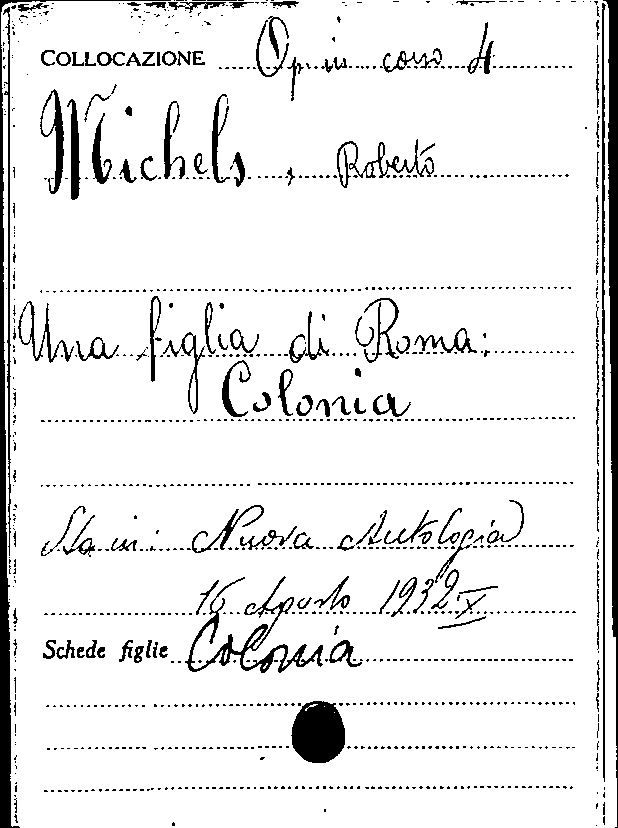 COLLOCAZIONE Op. in corso 4
Michels, Roberto
Una figlia di Roma:
Colonia
Sta in: Nuova Antologia
16 Agosto 1932 X
Schede figlie Colonia